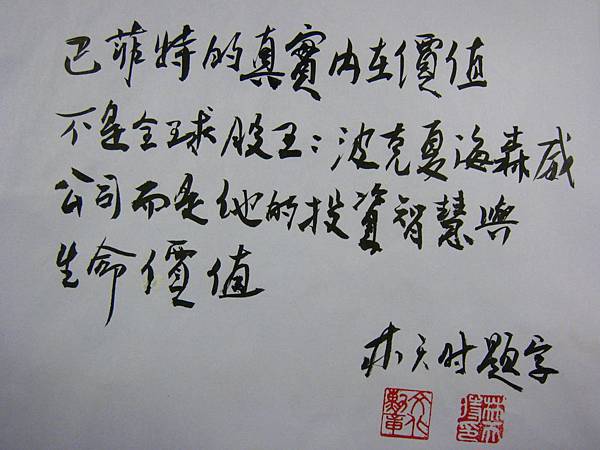 巴菲特的真實内在價值
不是全球股王：波克夏海森威
公司而是他的投資智慧與
生命價值
林天时題字
文化勳章